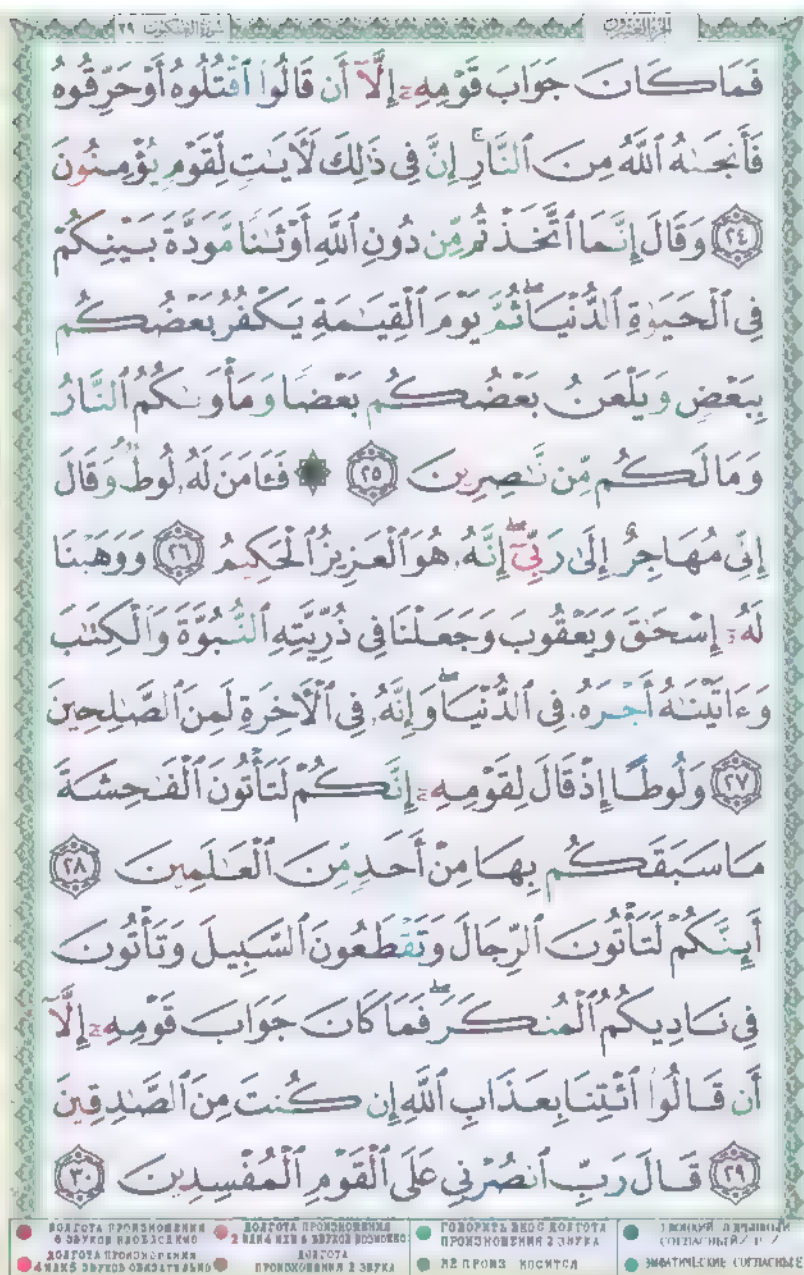 سورة العنكبوت ٢٩
الجزء العشرون
فَمَا كَانَ جَوَابَ قَوْمِهِۦٓ إِلَّآ أَن قَالُوا۟ ٱقْتُلُوهُ أَوْ حَرِّقُوهُ
فَأَنجَىٰهُ ٱللَّهُ مِنَ ٱلنَّارِ ۚ إِنَّ فِى ذَٰلِكَ لَءَايَٰتٍ لِّقَوْمٍ يُؤْمِنُونَ
٢٤ وَقَالَ إِنَّمَا ٱتَّخَذْتُم مِّن دُونِ ٱللَّهِ أَوْثَٰنًا مَّوَدَّةَ بَيْنِكُمْ
فِى ٱلْحَيَوٰةِ ٱلدُّنْيَا ۖ ثُمَّ يَوْمَ ٱلْقِيَٰمَةِ يَكْفُرُ بَعْضُكُم
بِبَعْضٍ وَيَلْعَنُ بَعْضُكُم بَعْضًا وَمَأْوَىٰكُمُ ٱلنَّارُ
وَمَا لَكُم مِّن نَّٰصِرِينَ ٢٥ ۞ فَـَٔامَنَ لَهُۥ لُوطٌ ۘ وَقَالَ
إِنِّى مُهَاجِرٌ إِلَىٰ رَبِّىٓ ۖ إِنَّهُۥ هُوَ ٱلْعَزِيزُ ٱلْحَكِيمُ ٢٦ وَوَهَبْنَا
لَهُۥٓ إِسْحَٰقَ وَيَعْقُوبَ وَجَعَلْنَا فِى ذُرِّيَّتِهِ ٱلنُّبُوَّةَ وَٱلْكِتَٰبَ
وَءَاتَيْنَٰهُ أَجْرَهُۥ فِى ٱلدُّنْيَا ۖ وَإِنَّهُۥ فِى ٱلْءَاخِرَةِ لَمِنَ ٱلصَّٰلِحِينَ
٢٧ وَلُوطًا إِذْ قَالَ لِقَوْمِهِۦٓ إِنَّكُمْ لَتَأْتُونَ ٱلْفَٰحِشَةَ
مَا سَبَقَكُم بِهَا مِنْ أَحَدٍ مِّنَ ٱلْعَٰلَمِينَ ٢٨
أَئِنَّكُمْ لَتَأْتُونَ ٱلرِّجَالَ وَتَقْطَعُونَ ٱلسَّبِيلَ وَتَأْتُونَ
فِى نَادِيكُمُ ٱلْمُنكَرَ ۖ فَمَا كَانَ جَوَابَ قَوْمِهِۦٓ إِلَّآ
أَن قَالُوا۟ ٱئْتِنَا بِعَذَابِ ٱللَّهِ إِن كُنتَ مِنَ ٱلصَّٰدِقِينَ
٢٩ قَالَ رَبِّ ٱنصُرْنِى عَلَى ٱلْقَوْمِ ٱلْمُفْسِدِينَ ٣٠
ДОЛГОТА ПРОИЗНОШЕНИЯ
6 ЗВУКОВ НЕОБХОДИМО
ДОЛГОТА ПРОИЗНОШЕНИЯ
4 ИЛИ 5 ЗВУКОВ ОБЯЗАТЕЛЬНО
ДОЛГОТА ПРОИЗНОШЕНИЯ
2 ИЛИ 4 ИЛИ 6 ЗВУКОВ ВОЗМОЖНО
ДОЛГОТА
ПРОИЗНОШЕНИЯ 2 ЗВУКА
ГОВОРИТЬ В НОС ДОЛГОТА
ПРОИЗНОШЕНИЯ 2 ЗВУКА
НЕ ПРОИЗНОСИТСЯ
ЭМФАТИЧЕСКИЕ СОГЛАСНЫЕ